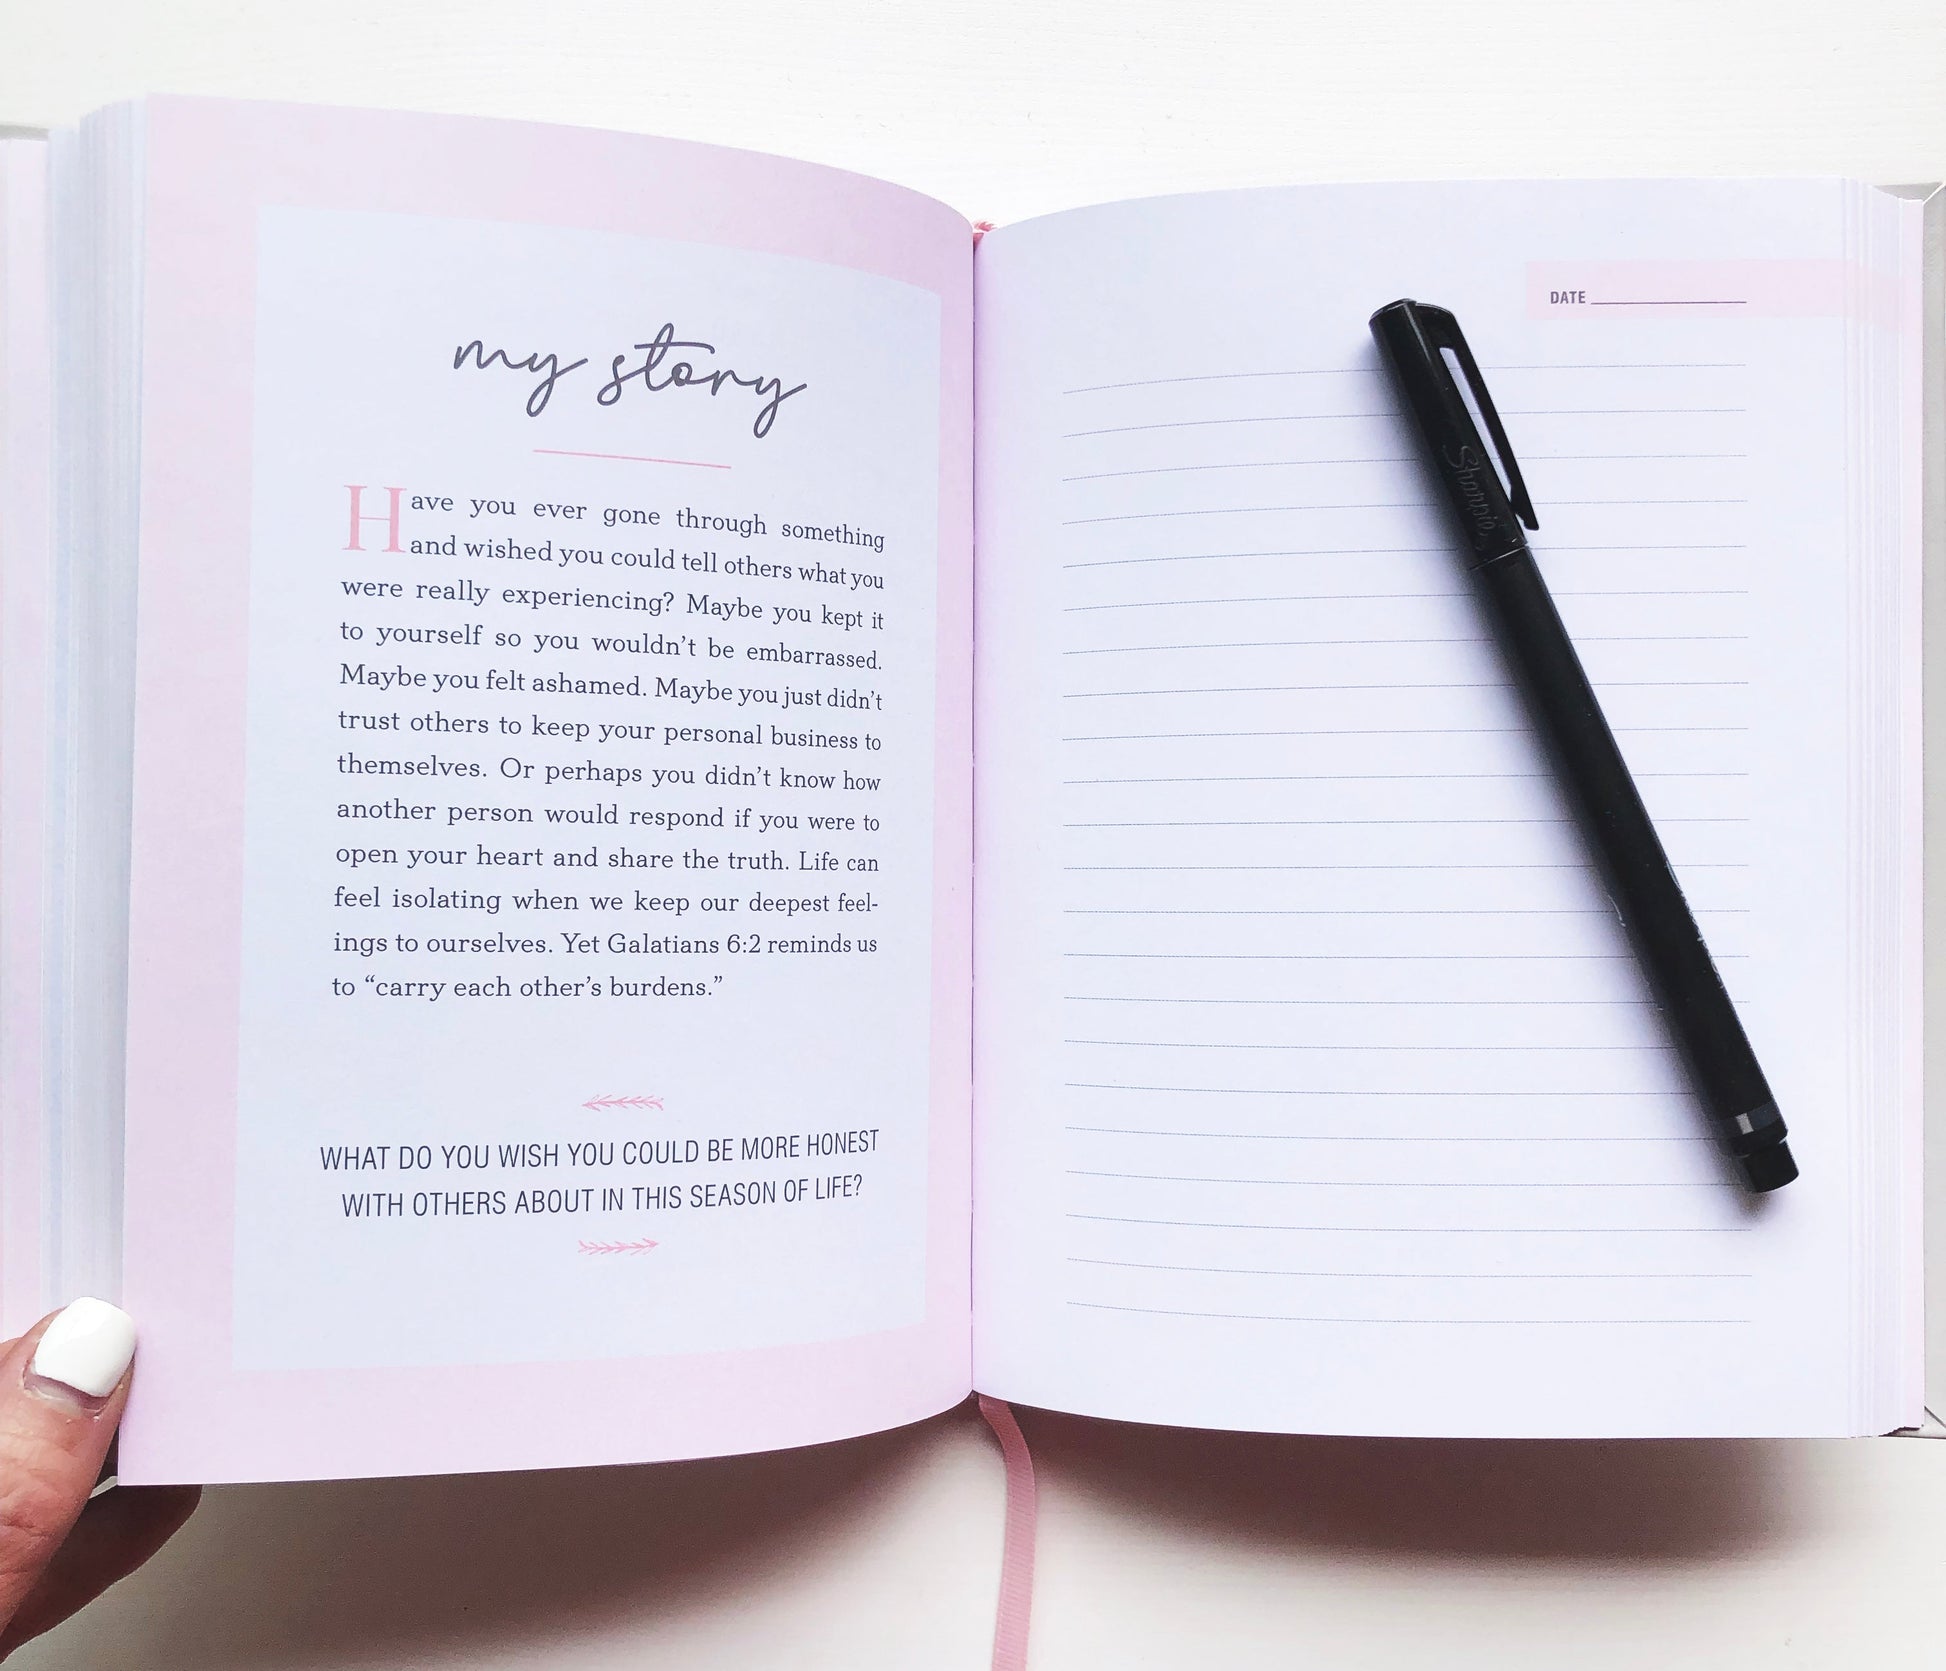 my story
Have you ever gone through something
and wished you could tell others what you
were really experiencing? Maybe you kept it
to yourself so you wouldn’t be embarrassed.
Maybe you felt ashamed. Maybe you just didn’t
trust others to keep your personal business to
themselves. Or perhaps you didn’t know how
another person would respond if you were to
open your heart and share the truth. Life can
feel isolating when we keep our deepest feel-
ings to ourselves. Yet Galatians 6:2 reminds us
to “carry each other’s burdens.”
WHAT DO YOU WISH YOU COULD BE MORE HONEST
WITH OTHERS ABOUT IN THIS SEASON OF LIFE?
DATE
Sharpie